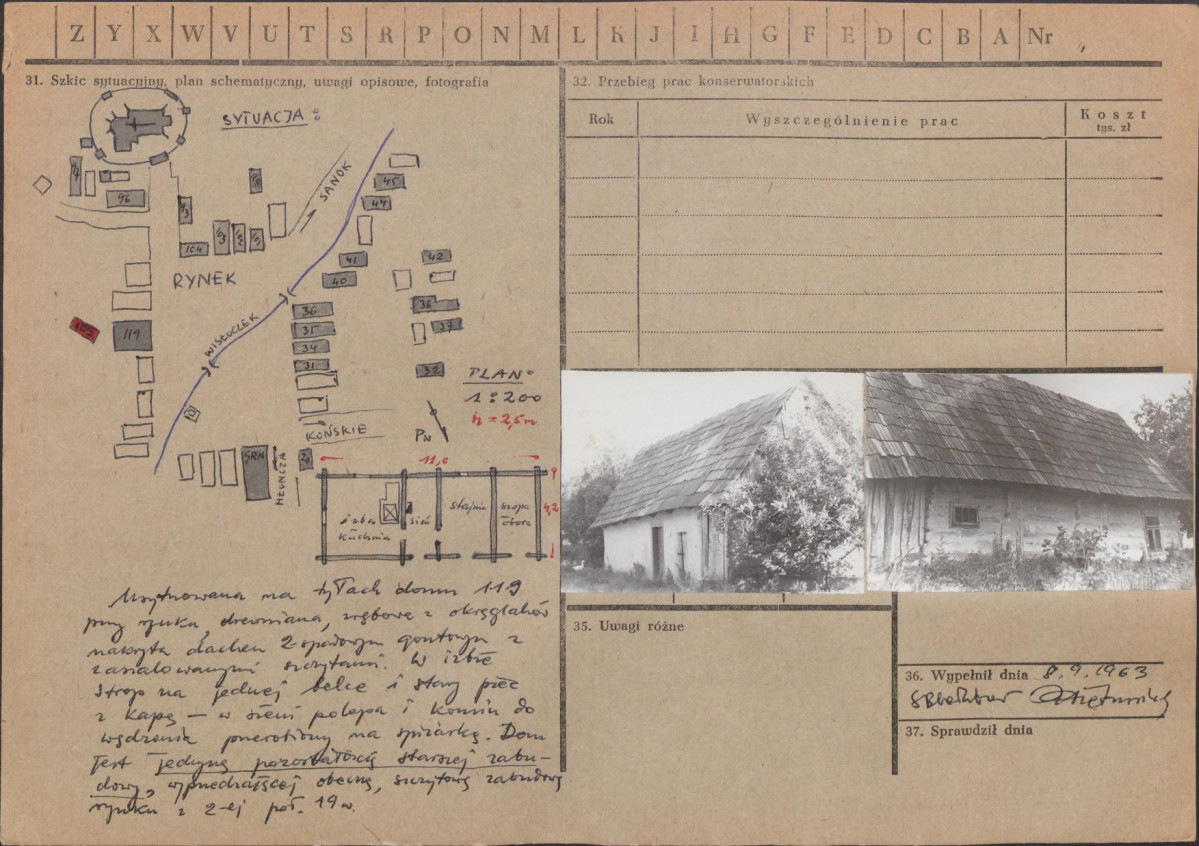 Z Y X W V U T S R P O N M L K J I H G F E D C B A Nr
31. Szkic sytuacyjny, plan schematyczny, uwagi opisowe, fotografia
SYTUACJA:
SANOK
45
44
96
104
RYNEK
41
40
42
36
35
34
31
38
37
32
119
WISŁOCZEK
KOŃSKIE
GRN
PLAN:
1:200
h = 2,5m
PN
11,0
izba
kuchnia
sień
stajnia
szopa
obora
Usytuowana na tyłach domu 119
przy rynku drewniana, zrębowa z okrąglaków
nakryta dachem 2-spadowym gontowym z
zaszalowanymi szczytami. W izbie
strop na jednej belce i stary piec
z kapą – w sieni polepa i komin do
wędzenia przerobiony na spiżarkę. Dom
jest jedyną pozostałością starszej zabu-
dowy, wyprzedzającej obecną, szczytową zabudowę
rynku z 2-ej poł. 19 w.
32. Przebieg prac konserwatorskich
Rok
Wyszczególnienie prac
Koszt
tys. zł
35. Uwagi różne
36. Wypełnił dnia 8.9.1963
37. Sprawdził dnia